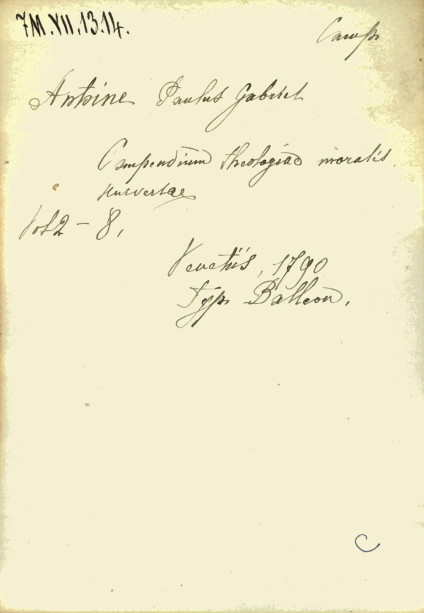 7M.VII.13.14.
Comp.
Antoine Paulus Gabriel
Compendium theologiae moralis
universae
Vol 2 - 8,
Venetiis, 1790
Typ. Balleon.
C